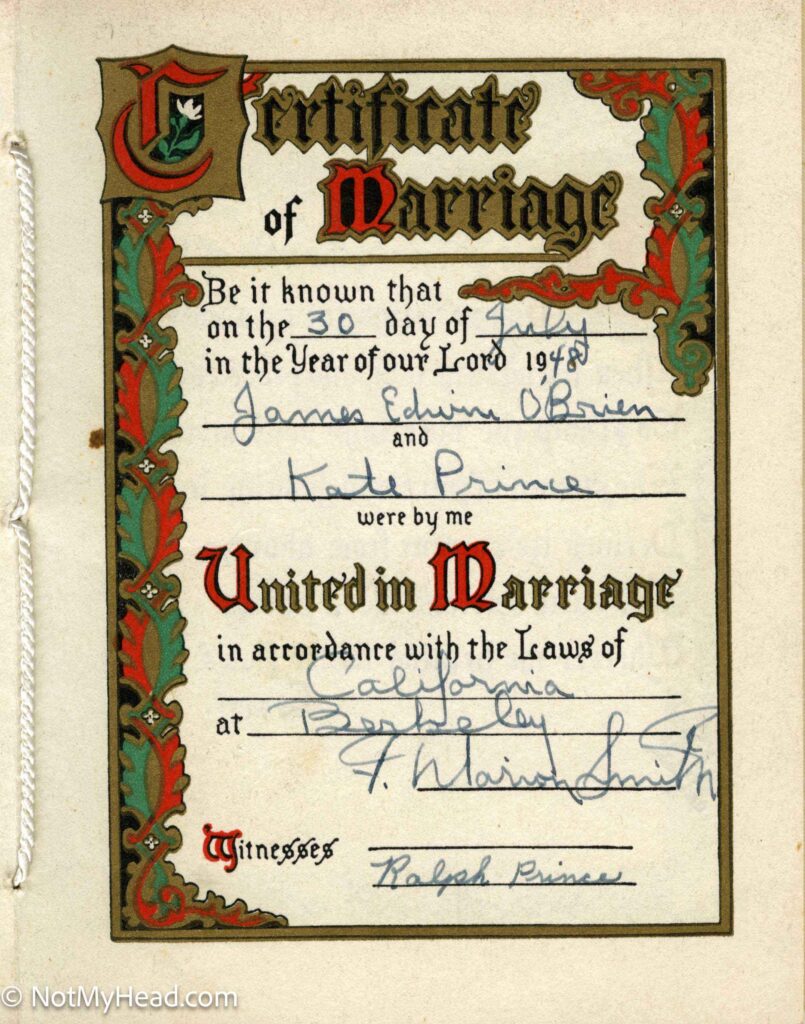 Certificate
of Marriage
Be it known that
on the 30 day of July
in the Year of our Lord 1948
James Edwin O'Brien
and
Kate Prince
were by me
United in Marriage
in accordance with the Laws of
California
at Berkeley
F. Marion Smith
Witnesses
Ralph Prince
© NotMyHead.com